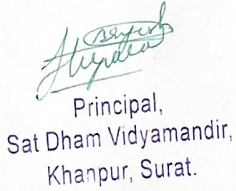 Principal,
Sat Dham Vidyamandir,
Khanpur, Surat.